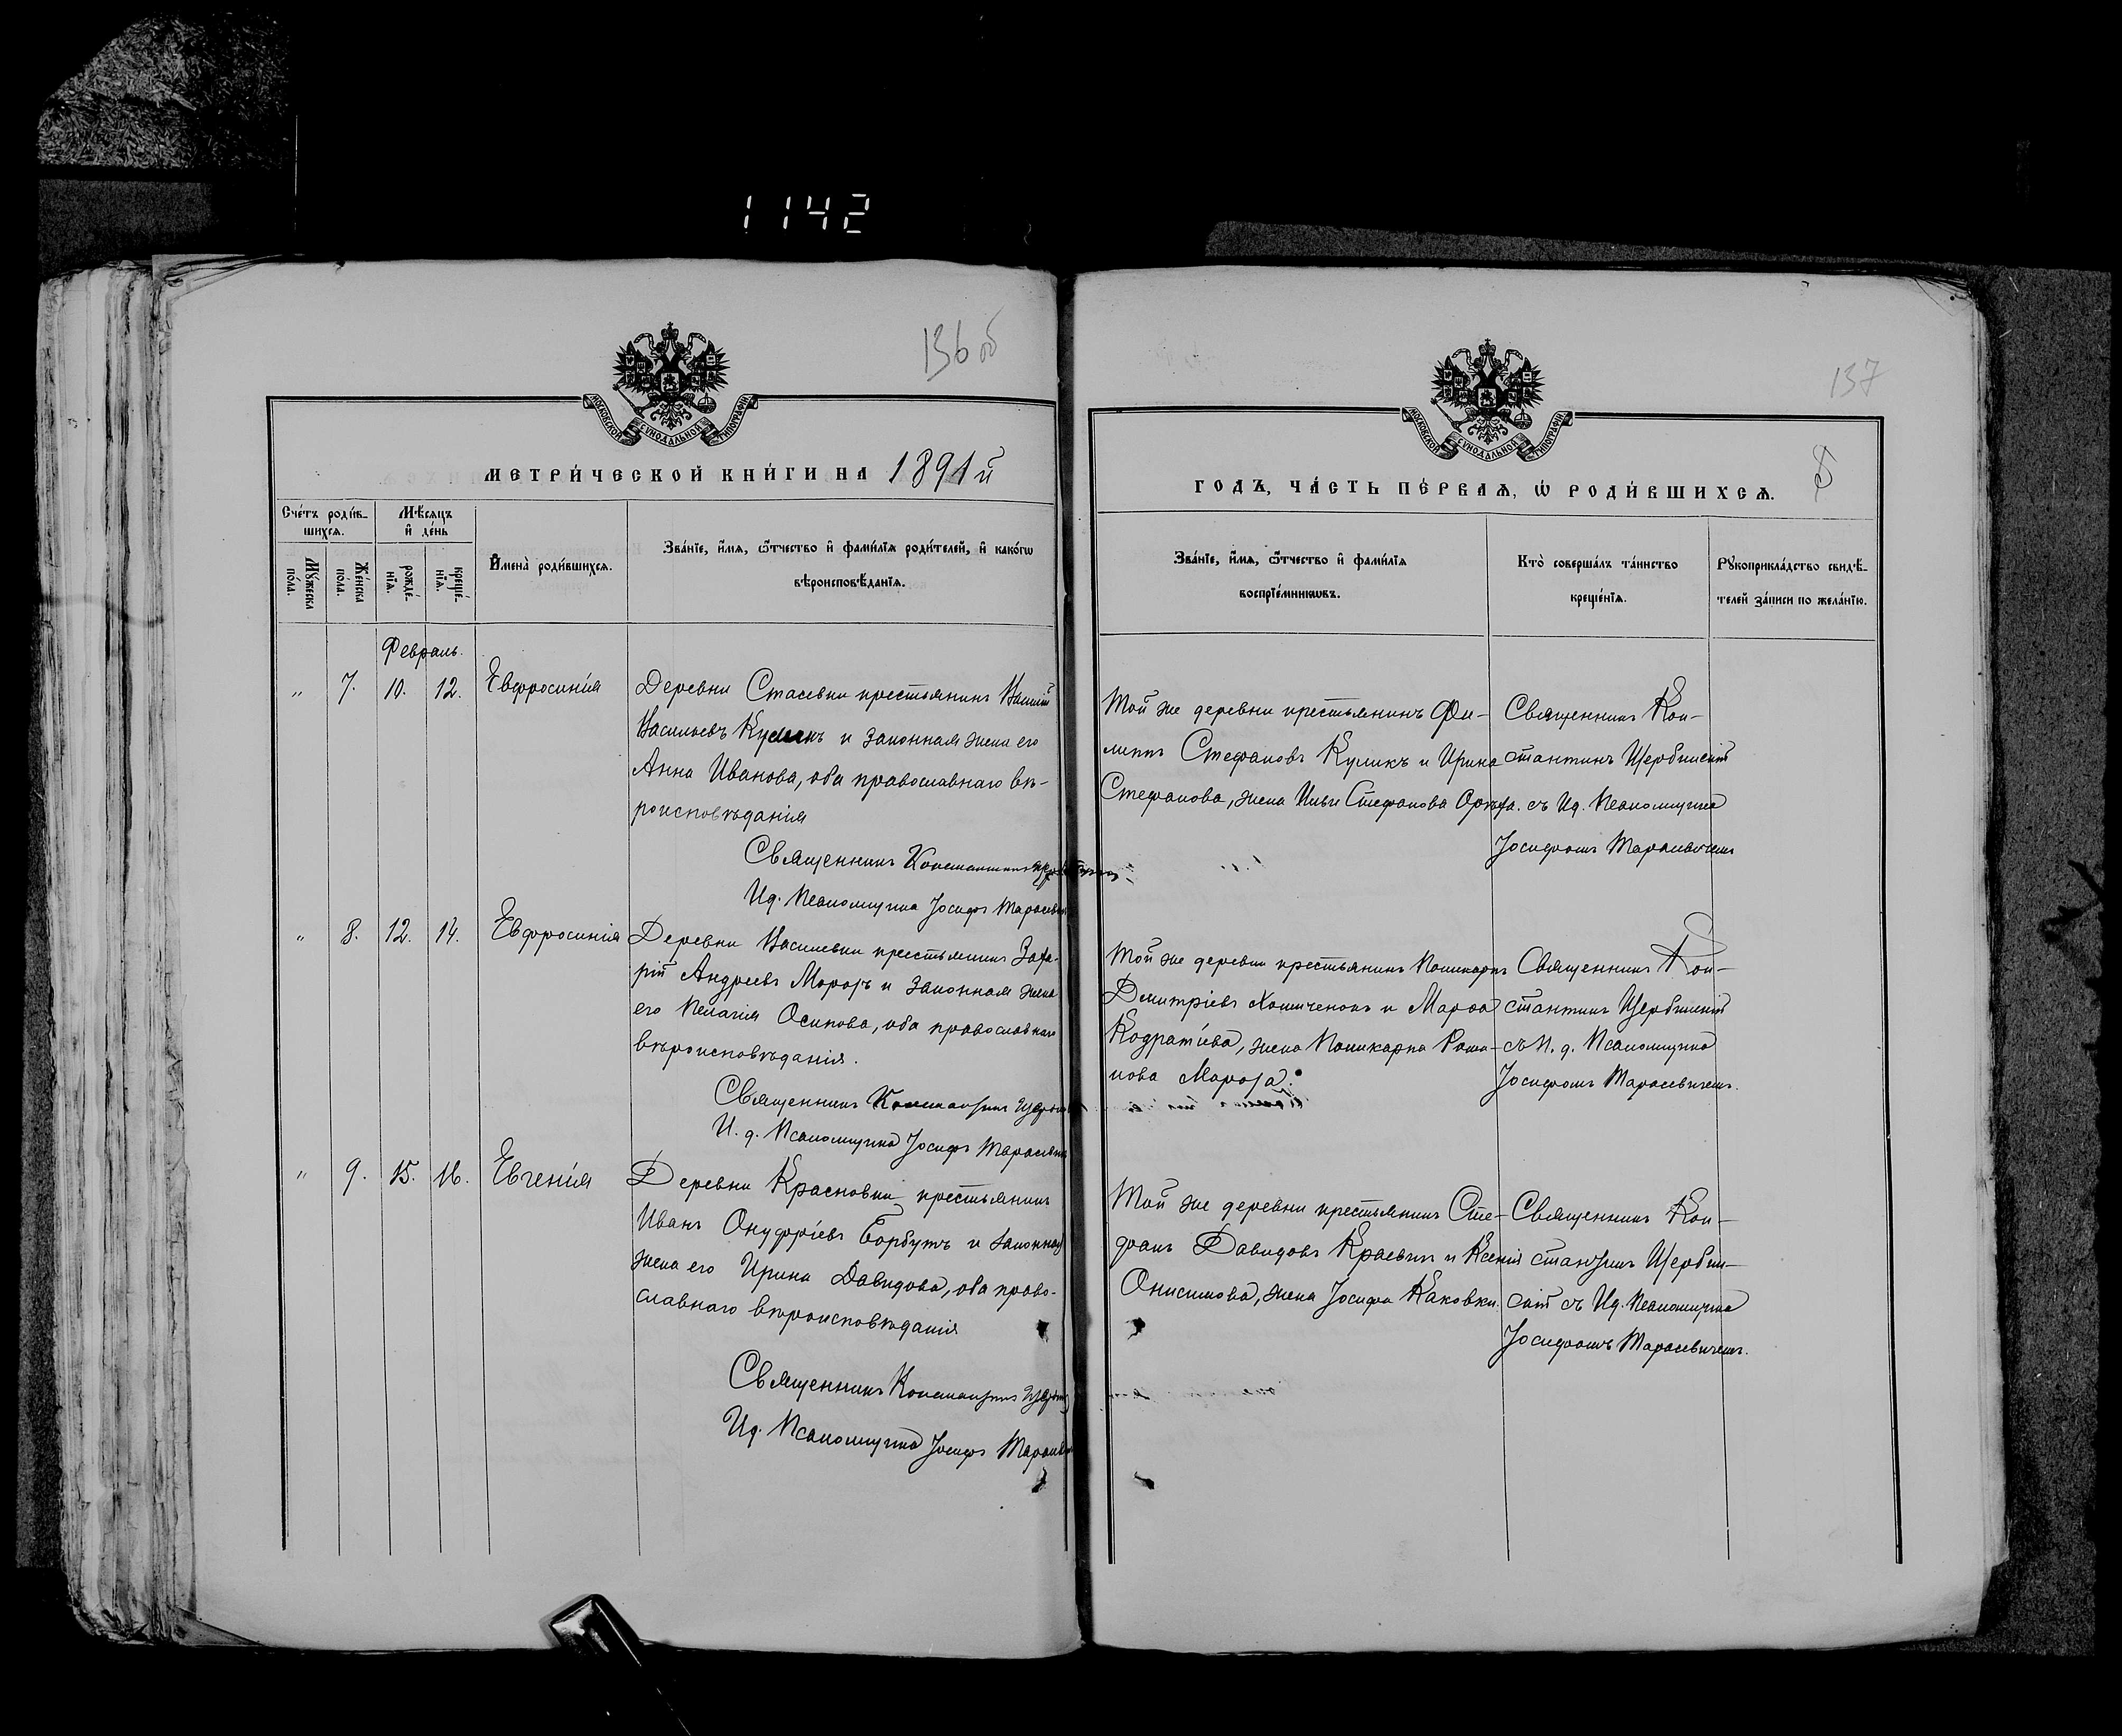 1142
136 об
МОСКОВСКОЙ СУНОДАЛЬНОЙ ТИПОГРАФІИ
МЕТРИ́ЧЕСКОЙ КНИ́ГИ НА 1891 й
Сче́тъ роди́в-
шихся.
Мѣ́сяцъ
и҆ де́нь
Мꙋ́жеска
по́ла.
Же́нска
по́ла.
рожде́-
нїѧ.
креще́-
нїѧ.
И҆мена̀ роди́вшихсѧ.
Зва́нїе, и҆́мѧ, ѻ҆́тчество и҆ фамі́лїѧ роди́телей, и҆ како́гѡ
вѣроисповѣ́данїѧ.
Февраль.
" 7. 10. 12. Евфросинія
Деревни Стасевки крестьянинъ
Васильевъ Куликъ и законная жена его
Анна Иванова, оба православнаго вѣ-
роисповѣданія
Священникъ Константинъ
Ид. Псаломщика Іосифъ Тарасевичъ
" 8. 12. 14. Евфросинія
Деревни Василевки крестьянинъ Заха-
рій Андреевъ Морозъ и законная жена
его Пелагія Осипова, оба православнаго
вѣроисповѣданія.
Священникъ Константинъ
И. д. Псаломщика Іосифъ Тарасевичъ
" 9. 15. 16. Евгенія
Деревни Красновки крестьянинъ
Иванъ Онуфріевъ Борбутъ и законная
жена его Ирина Давидова, оба право-
славнаго вѣроисповѣданія
Священникъ Константинъ
Ид. Псаломщика Іосифъ Тарасевичъ
137
МОСКОВСКОЙ СУНОДАЛЬНОЙ ТИПОГРАФІИ
ГОДЪ, ЧА́СТЬ ПЕ́РВАѦ, Ѡ҆ РОДИ́ВШИХСѦ.
Зва́нїе, и҆́мѧ, ѻ҆́тчество и҆ фамі́лїѧ
воспрїе́мникѡвъ.
Кто̀ соверша́лъ та́инство
креще́нїѧ.
Рꙋкоприкла́дство свидѣ́-
телей за́писи по жела́нїю.
Той же деревни крестьянинъ Фи-
липпъ Стефановъ Куликъ и Ирина
Стефанова, жена Ильи Стефанова
Священникъ Кон-
стантинъ Щербинскій
съ Ид. Псаломщика
Іосифомъ Тарасевичемъ
Той же деревни крестьянинъ Поликарпъ
Дмитріевъ Хомиченокъ и Марѳа
Кодратіева, жена Поликарпа Рома-
нова Мороза.
Священникъ Кон-
стантинъ Щербинскій
съ И. д. Псаломщика
Іосифомъ Тарасевичемъ.
Той же деревни крестьянинъ Сте-
фанъ Давидовъ Краевъ и Ксенія
Онисимова, жена Іосифа Каковки.
Священникъ Кон-
стантинъ Щербин-
скій съ Ид. Псаломщика
Іосифомъ Тарасевичемъ.